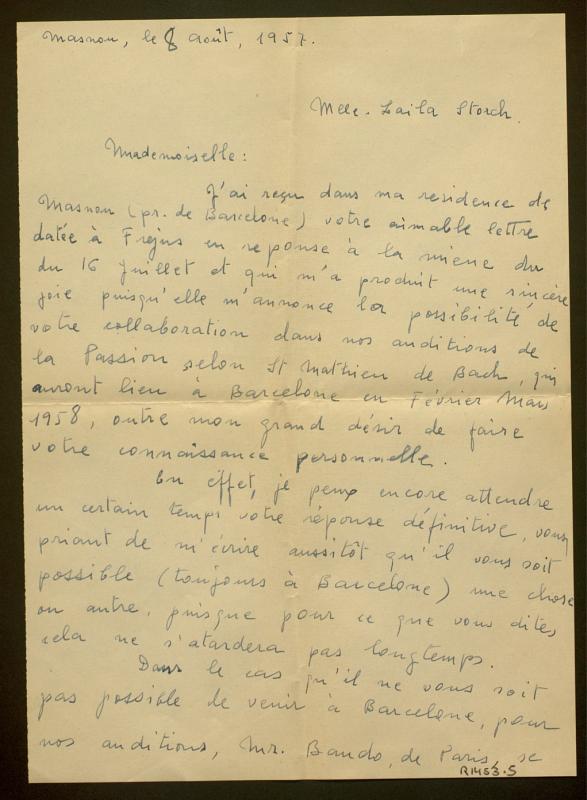 Masnou, le 8 août, 1957.
Melle. Laila Storch.
Mademoiselle:
J'ai reçu dans ma residence de
Masnou (pr. de Barcelone) votre aimable lettre
datée à Frejus en reponse à la miene du
du 16 Juillet et qui m'a produit une sincère
joie puisqu'elle m'annonce la possibilité de
votre collaboration dans nos auditions de
la Passion selon St Mathieu de Bach, qui
auront lieu à Barcelone en Février Mars
1958, outre mon grand désir de faire
votre connaissance personnelle.
En effet, je peux encore attendre
un certain temps votre réponse définitive, vous
priant de m'écrire aussitôt qu'il vous soit
possible (toujours à Barcelone) une chose
ou autre, puisque pour ce que vous dites,
cela ne s'atardera pas longtemps.
Dans le cas qu'il ne vous soit
pas possible de venir à Barcelone, pour
nos auditions, Mr. Baudo, de Paris, se
R1453.5